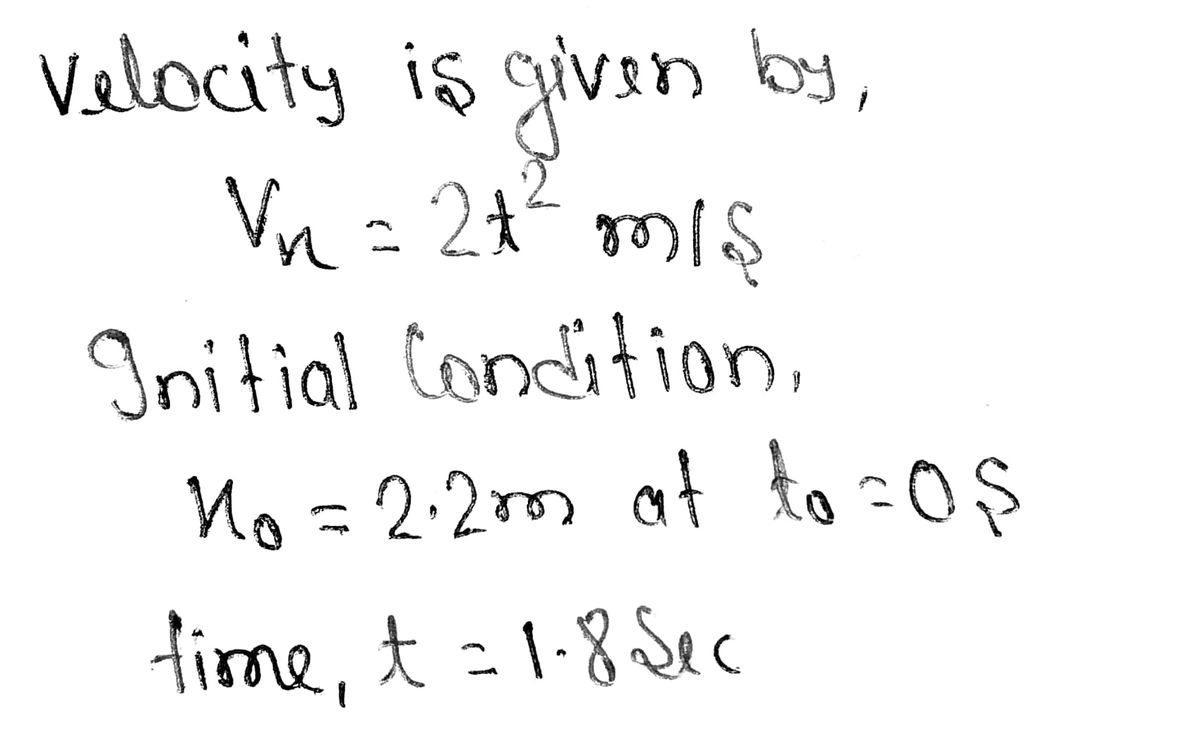 Velocity is given by,
Vx = 2t² m/s
Initial Condition,
x₀ = 2.2m at t₀ = 0s
time, t = 1.8 Sec